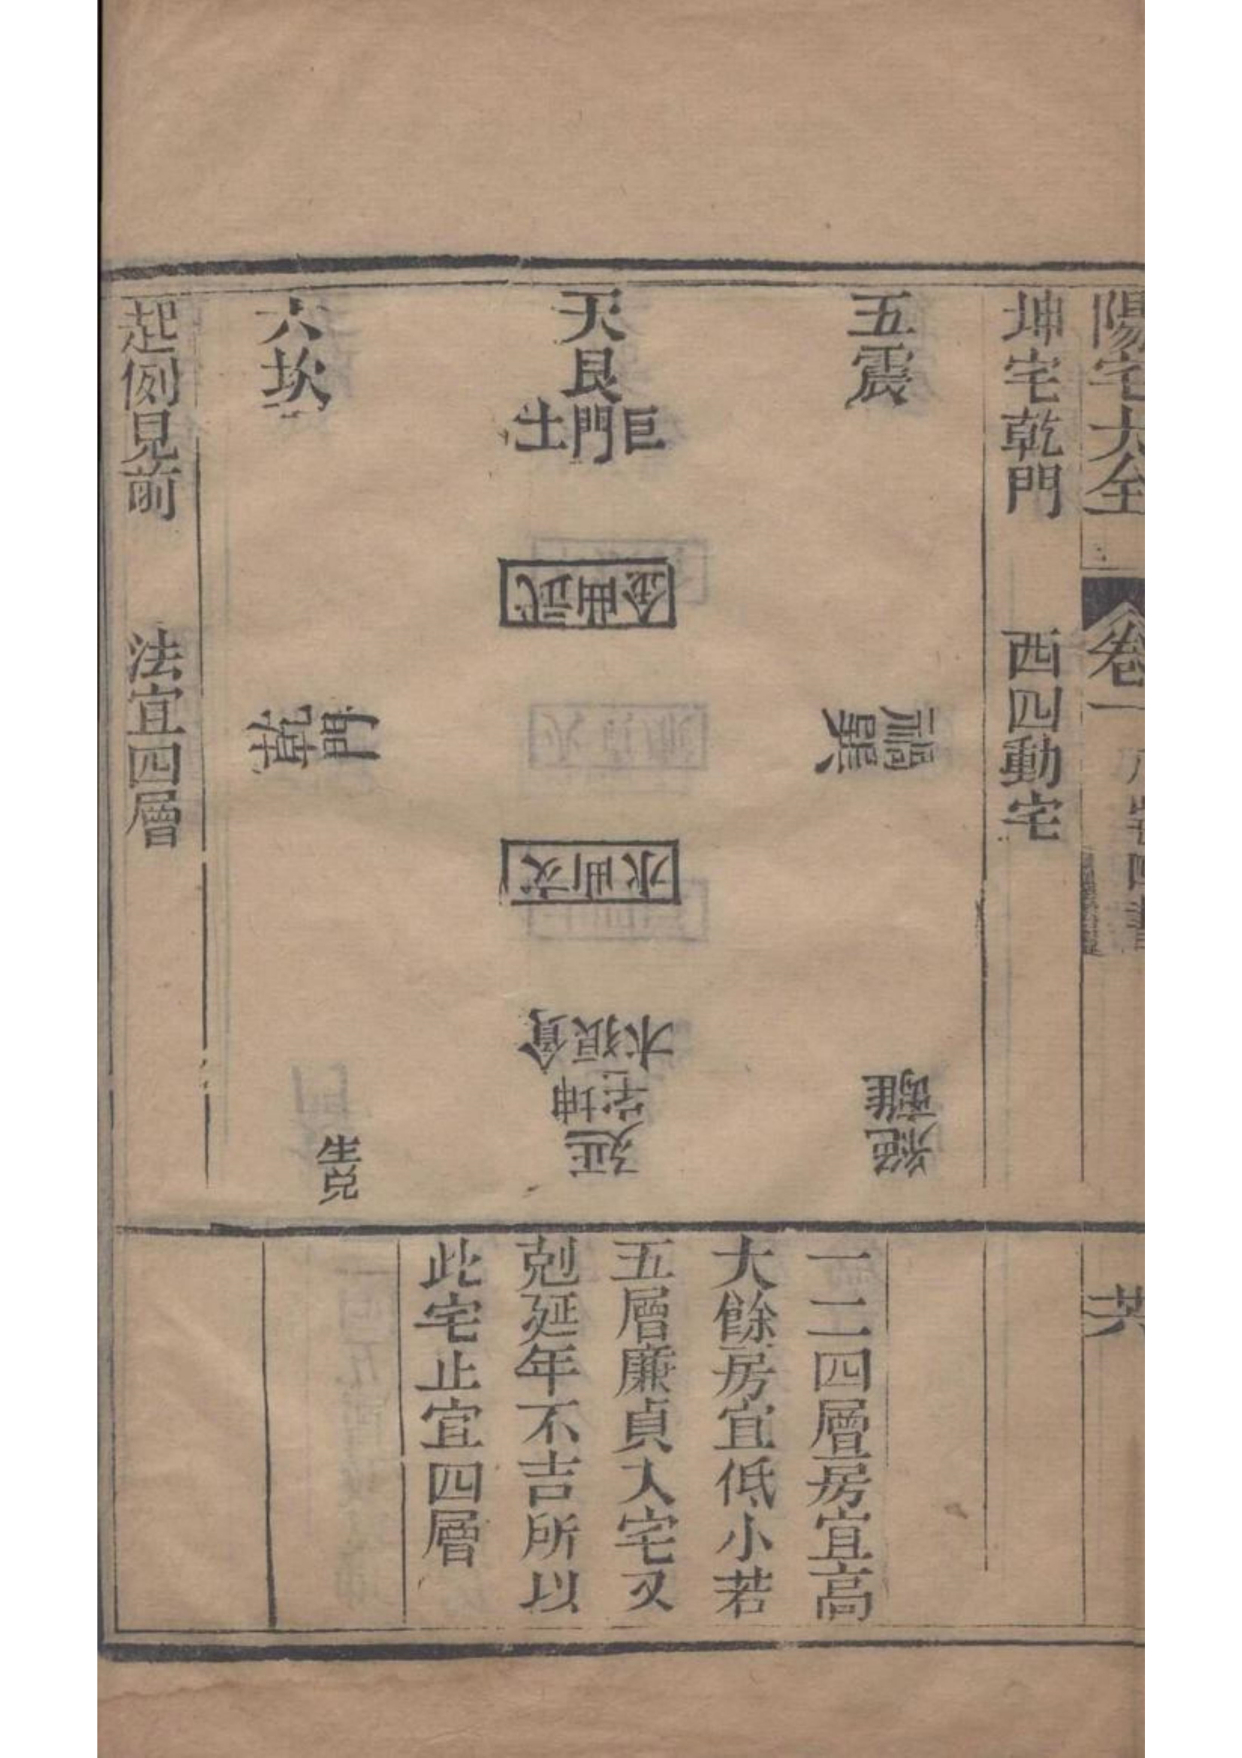 陽宅大全
卷一
坤宅乾門 西四動宅
五震
禍巽
絕離
天艮
巨門土
武曲金
文曲水
貪狼木
坤宅
延
六坎
乾門
生兌
起例見前 法宜四層
一二四層房宜高
大餘房宜低小若
五層廉貞入宅又
剋延年不吉所以
此宅止宜四層